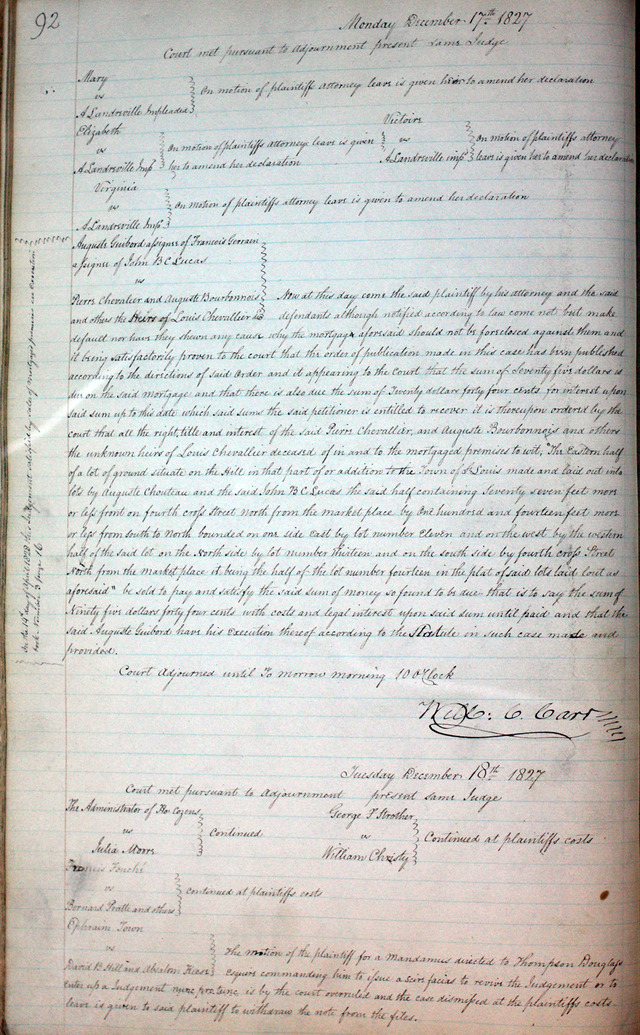 92
Monday December 17th 1827
Court met pursuant to Adjournment present same Judge
Mary
vs
A Landreville Impleaded
On motion of plaintiff attorney leave is given her to amend her declaration
Elizabeth
vs
A Landreville Imp
On motion of plaintiffs attorney leave is given
her to amend her declaration
Victoire
vs
A Landreville imp
On motion of plaintiffs attorney
leave is given her to amend her declaration
Virginia
vs
A Landreville Imp
On motion of plaintiffs attorney leave is given to amend her declaration
Auguste Guibord assignee of Francois Gerrain
assignee of John B C Lucas
vs
Pierre Chevalier and Auguste Bourbonnois
and others the Heirs of Louis Chevallier
Now at this day come the said plaintiff by his attorney and the said
defendants although notified according to law come not but make
default nor have they shewn any cause why the mortgage aforesaid should not be foreclosed against them and
it being satisfactorily proven to the court that the order of publication made in this case has been published
according to the directions of said Order and it appearing to the Court that the sum of Seventy five dollars is
due on the said mortgage and that there is also due the sum of Twenty dollars forty four cents for interest upon
said sum up to this date which said sums the said petitioner is entitled to recover it is thereupon ordered by the
court that all the right, title and interest of the said Pierre Chevallier, and Auguste Bourbonnois and others
the unknown heirs of Louis Chevallier deceased of in and to the mortgaged premises to wit, "The Eastern half
of a lot of ground situate on the Hill in that part of or addition to the Town of St Louis made and laid out into
lots by Auguste Chouteau and the said John B C Lucas the said half containing Seventy seven feet more
or less front on fourth cross Street North from the market place by One hundred and fourteen feet more
or less from south to North bounded on one side East by lot number Eleven and on the west by the western
half of the said lot on the North side by lot number thirteen and on the south side by fourth cross Street
North from the market place it being the half of the lot number fourteen in the plat of said lots laid out as
aforesaid" be sold to pay and satisfy the said sum of money so found to be due that is to say the sum of
Ninety five dollars forty four cents with costs and legal interest upon said sum until paid and that the
said Auguste Guibord have his Execution thereof according to the Statute in such case made and
provided.
Court Adjourned until To morrow morning 10 O'Clock
Wm C. Carr
Tuesday December 18th 1827
Court met pursuant to Adjournment present same Judge
The Administrator of Ho Cozens
vs
Julia Morre
continued
George F Strother
vs
William Christy
Continued at plaintiffs costs
Francis Fouché
vs
Bernard Pratte and others
continued at plaintiffs costs
Ephraim Town
vs
David B Hill and Absalom Keese
The motion of the plaintiff for a Mandamus directed to Thompson Douglass
Esquire commanding him to issue a scire facias to revive the Judgement or to
enter up a Judgement nunc pro tunc is by the court overruled and the case dismissed at the plaintiffs costs
leave is given to said plaintiff to withdraw the note from the files.